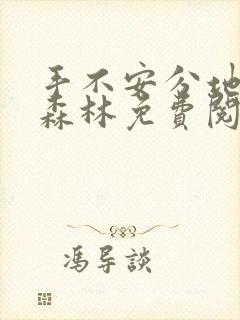 手不安分地
森林免费阅
冯导谈